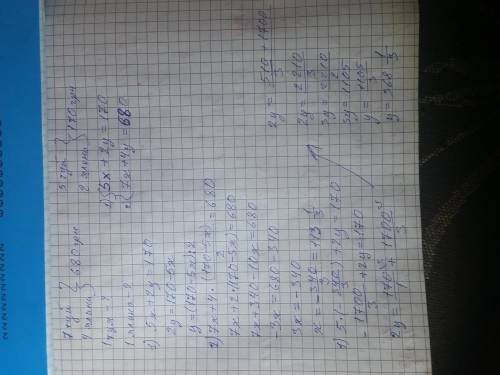 7 кум } 680 грн
4 плана
1 кум = ?
1 плана - ?
5 кум } 170 грн
2 плана
1) { 5x + 2y = 170
2) { 7x + 4y = 680
1) 5x + 2y = 170
2y = 170 - 5x
y = (170 - 5x) : 2
2) 7x + 4 · (170 - 5x)/2 = 680
7x + 2 · (170 - 5x) = 680
7x + 340 - 10x = 680
-3x = 680 - 340
3x = -340
x = -340/3 = 113 1/3
1) 5 · (-340/3) + 2y = 170
-1700/3 + 2y = 170
2y = 170/1 + 1700/3
2y = 510 + 1700/3
2y = 2210/3
3y = 2210/2
3y = 1105
y = 1105/3
y = 368 1/3